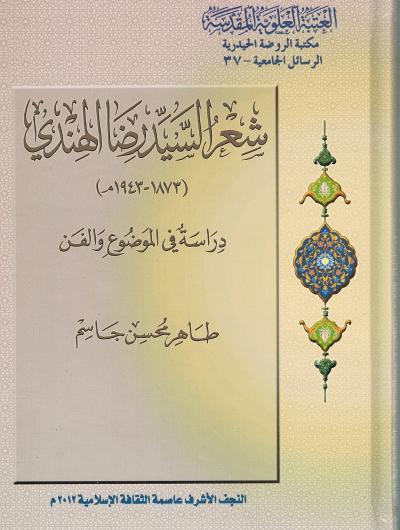 العتبة العلوية المقدسة
مكتبة الروضة الحيدرية
الرسائل الجامعية - ٣٧
شعر السيد رضا الهندي
(١٨٧٣-١٩٤٣م)
دراسة في الموضوع والفن
طاهر محسن جاسم
النجف الأشرف عاصمة الثقافة الإسلامية ٢٠١٢م